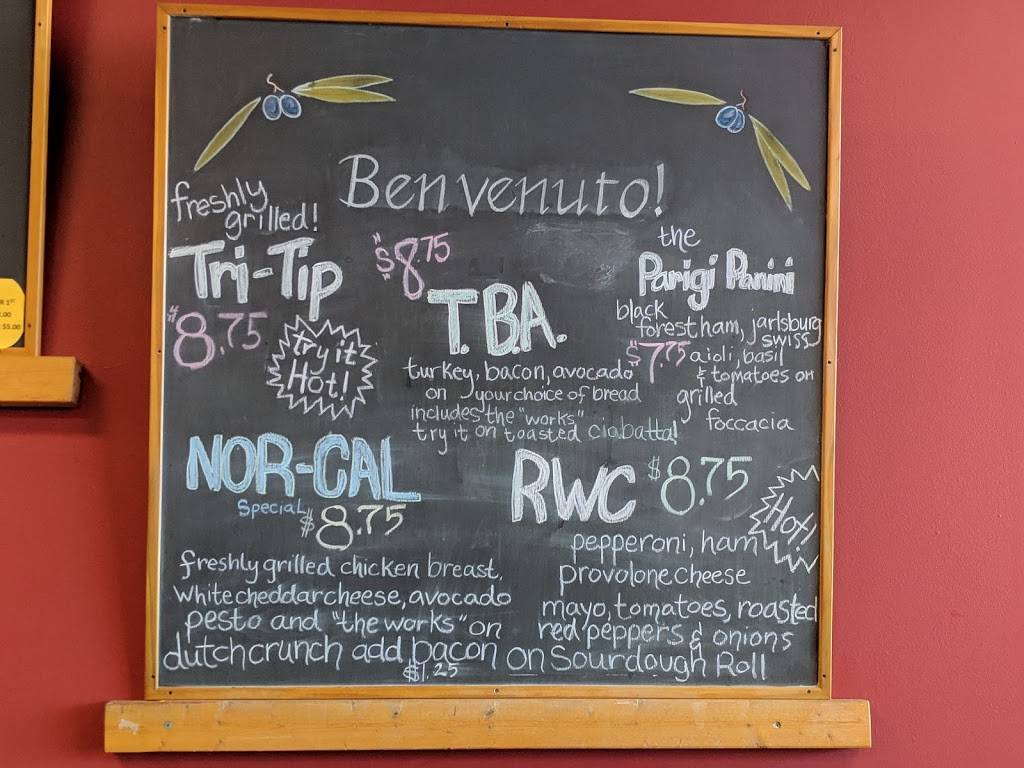 Benvenuto!
freshly
grilled!
Tri-Tip
$8.75
try it
Hot!
$8.75
T.B.A.
turkey, bacon, avocado
on your choice of bread
includes the "works"
try it on toasted ciabatta!
the
Parigi Panini
black
forest ham, jarlsburg
swiss
$7.75 aioli, basil
& tomatoes on
grilled
foccacia
NOR-CAL
Special $8.75
freshly grilled chicken breast,
white cheddar cheese, avocado
pesto and "the works" on
dutchcrunch add bacon
$1.25
RWC $8.75
Hot!
pepperoni, ham
provolone cheese
mayo, tomatoes, roasted
red peppers & onions
on Sourdough Roll
R 1st
$5.00